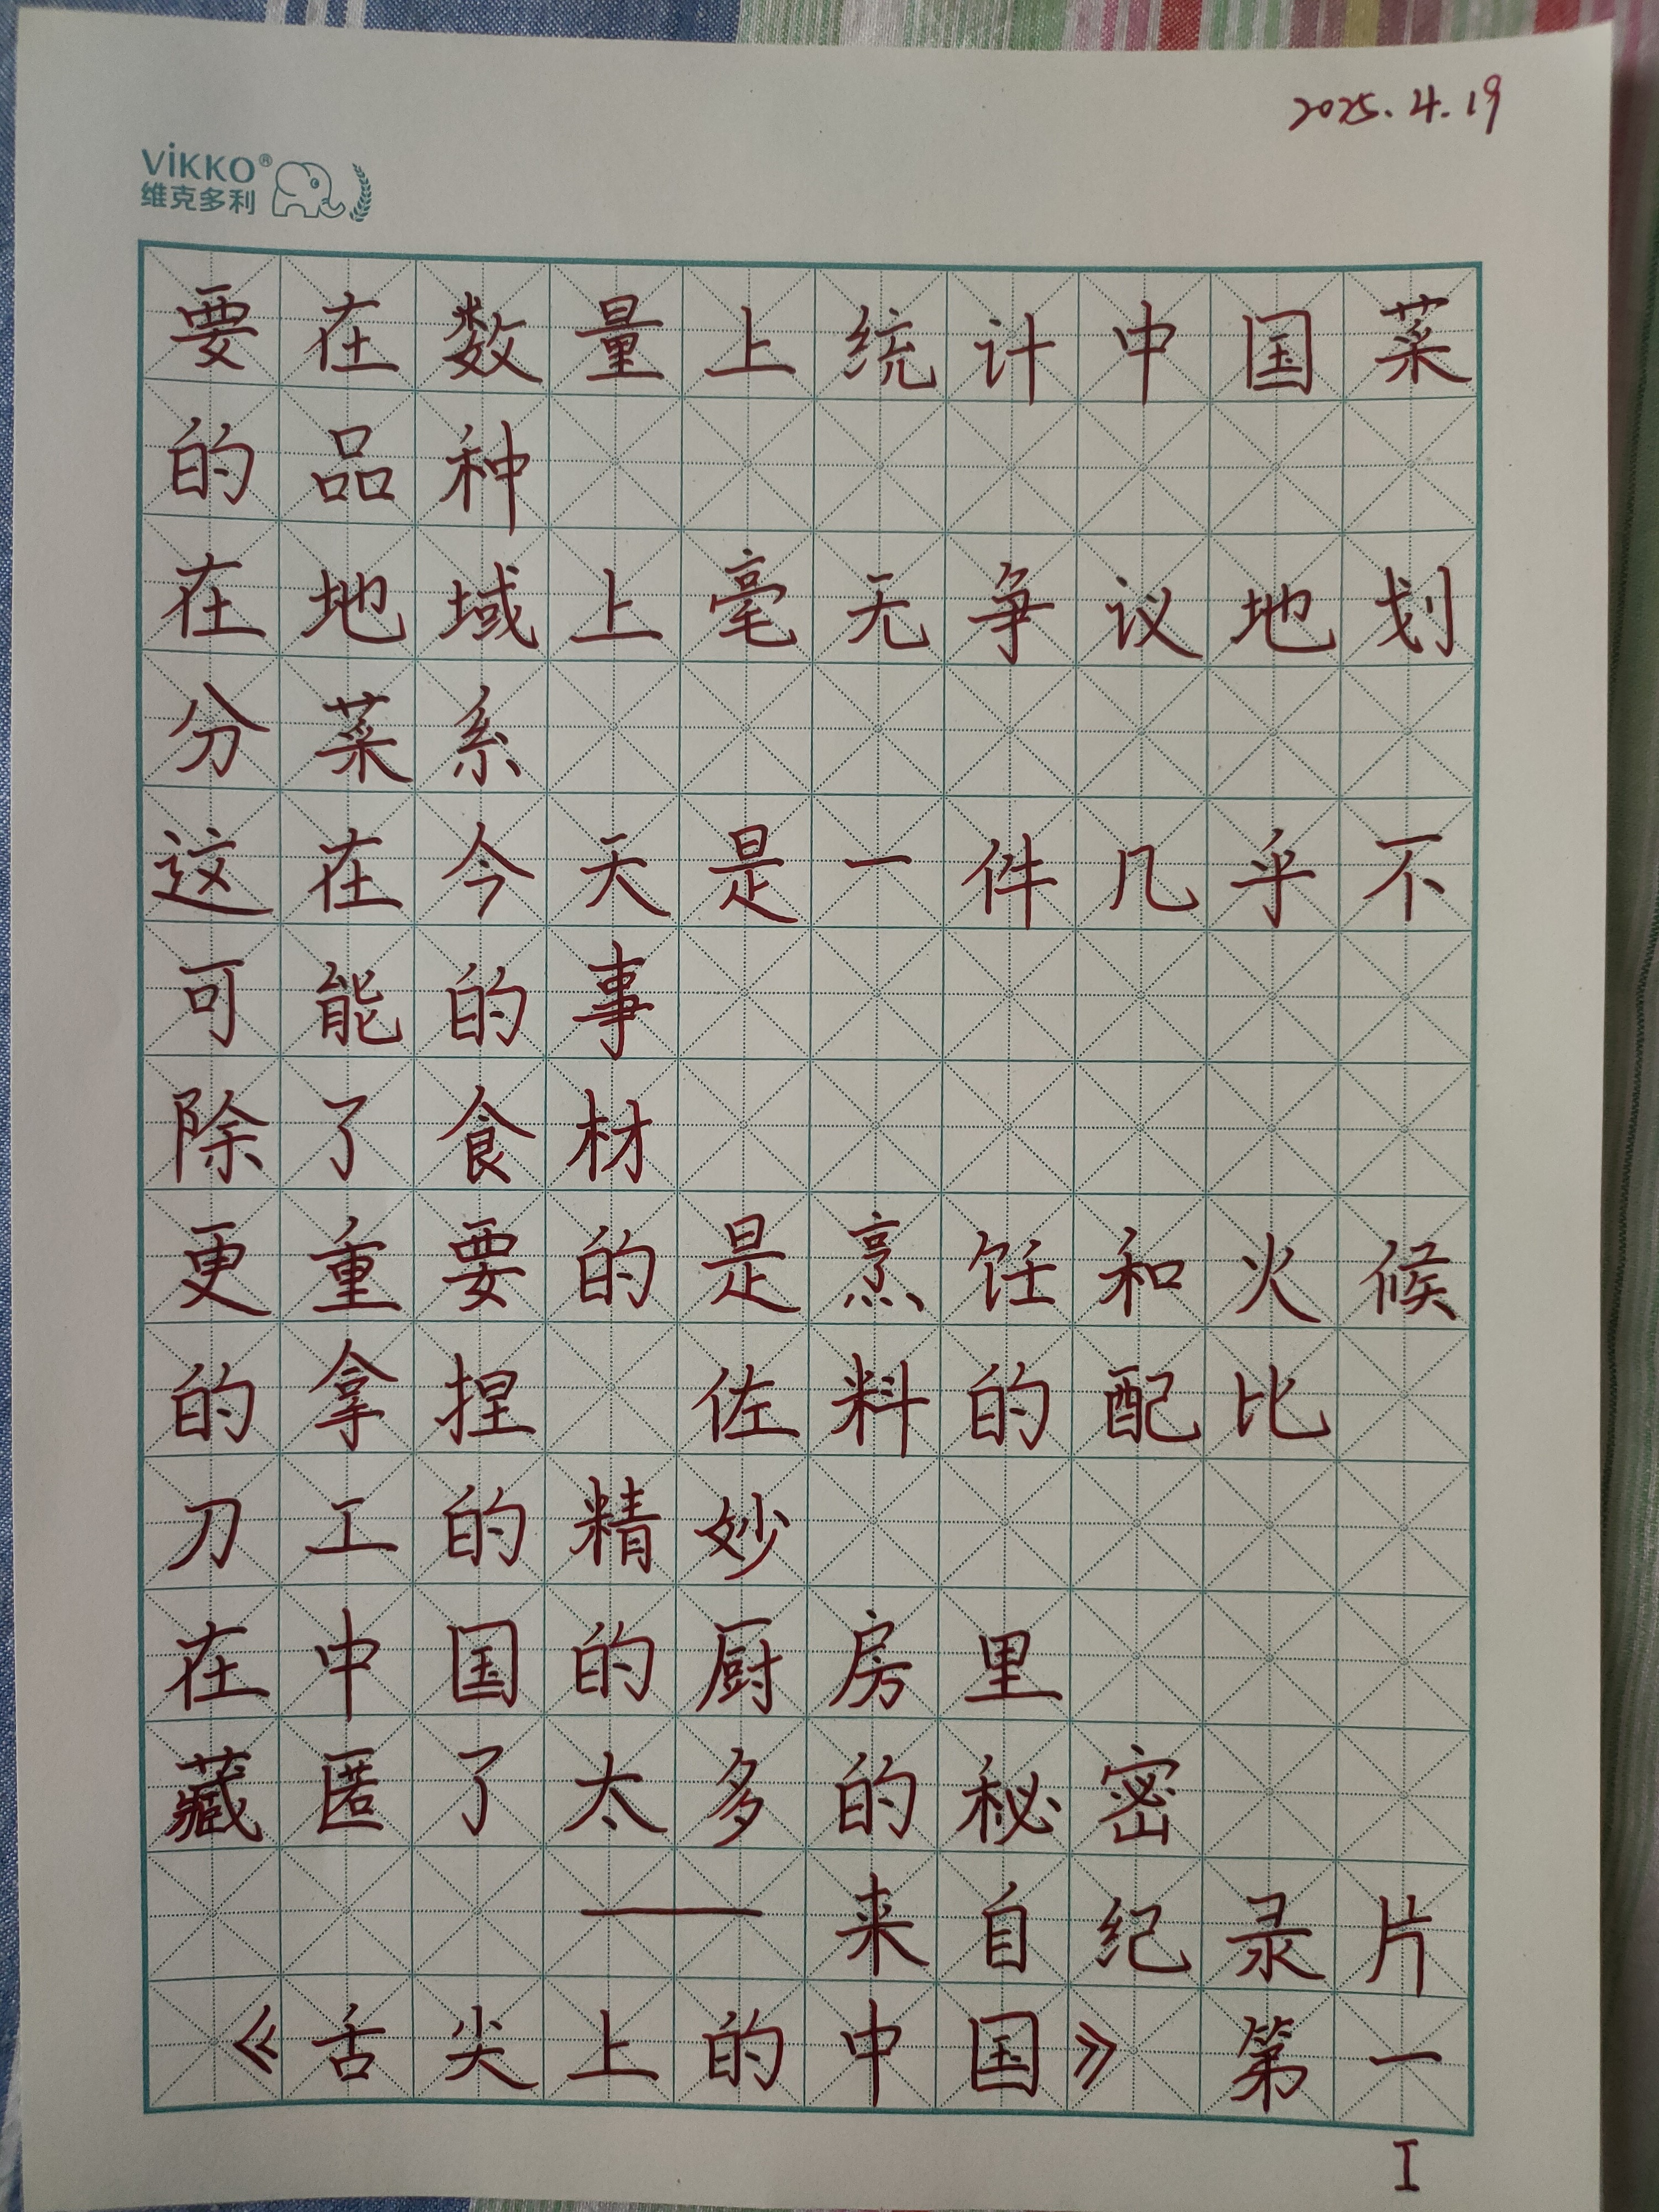 2025.4.19
ViKKO®
维克多利
要在数量上统计中国菜
的品种
在地域上毫无争议地划
分菜系
这在今天是一件几乎不
可能的事
除了食材
更重要的是烹饪和火候
的拿捏 佐料的配比
刀工的精妙
在中国的厨房里
藏匿了太多的秘密
——来自纪录片
《舌尖上的中国》第一
I